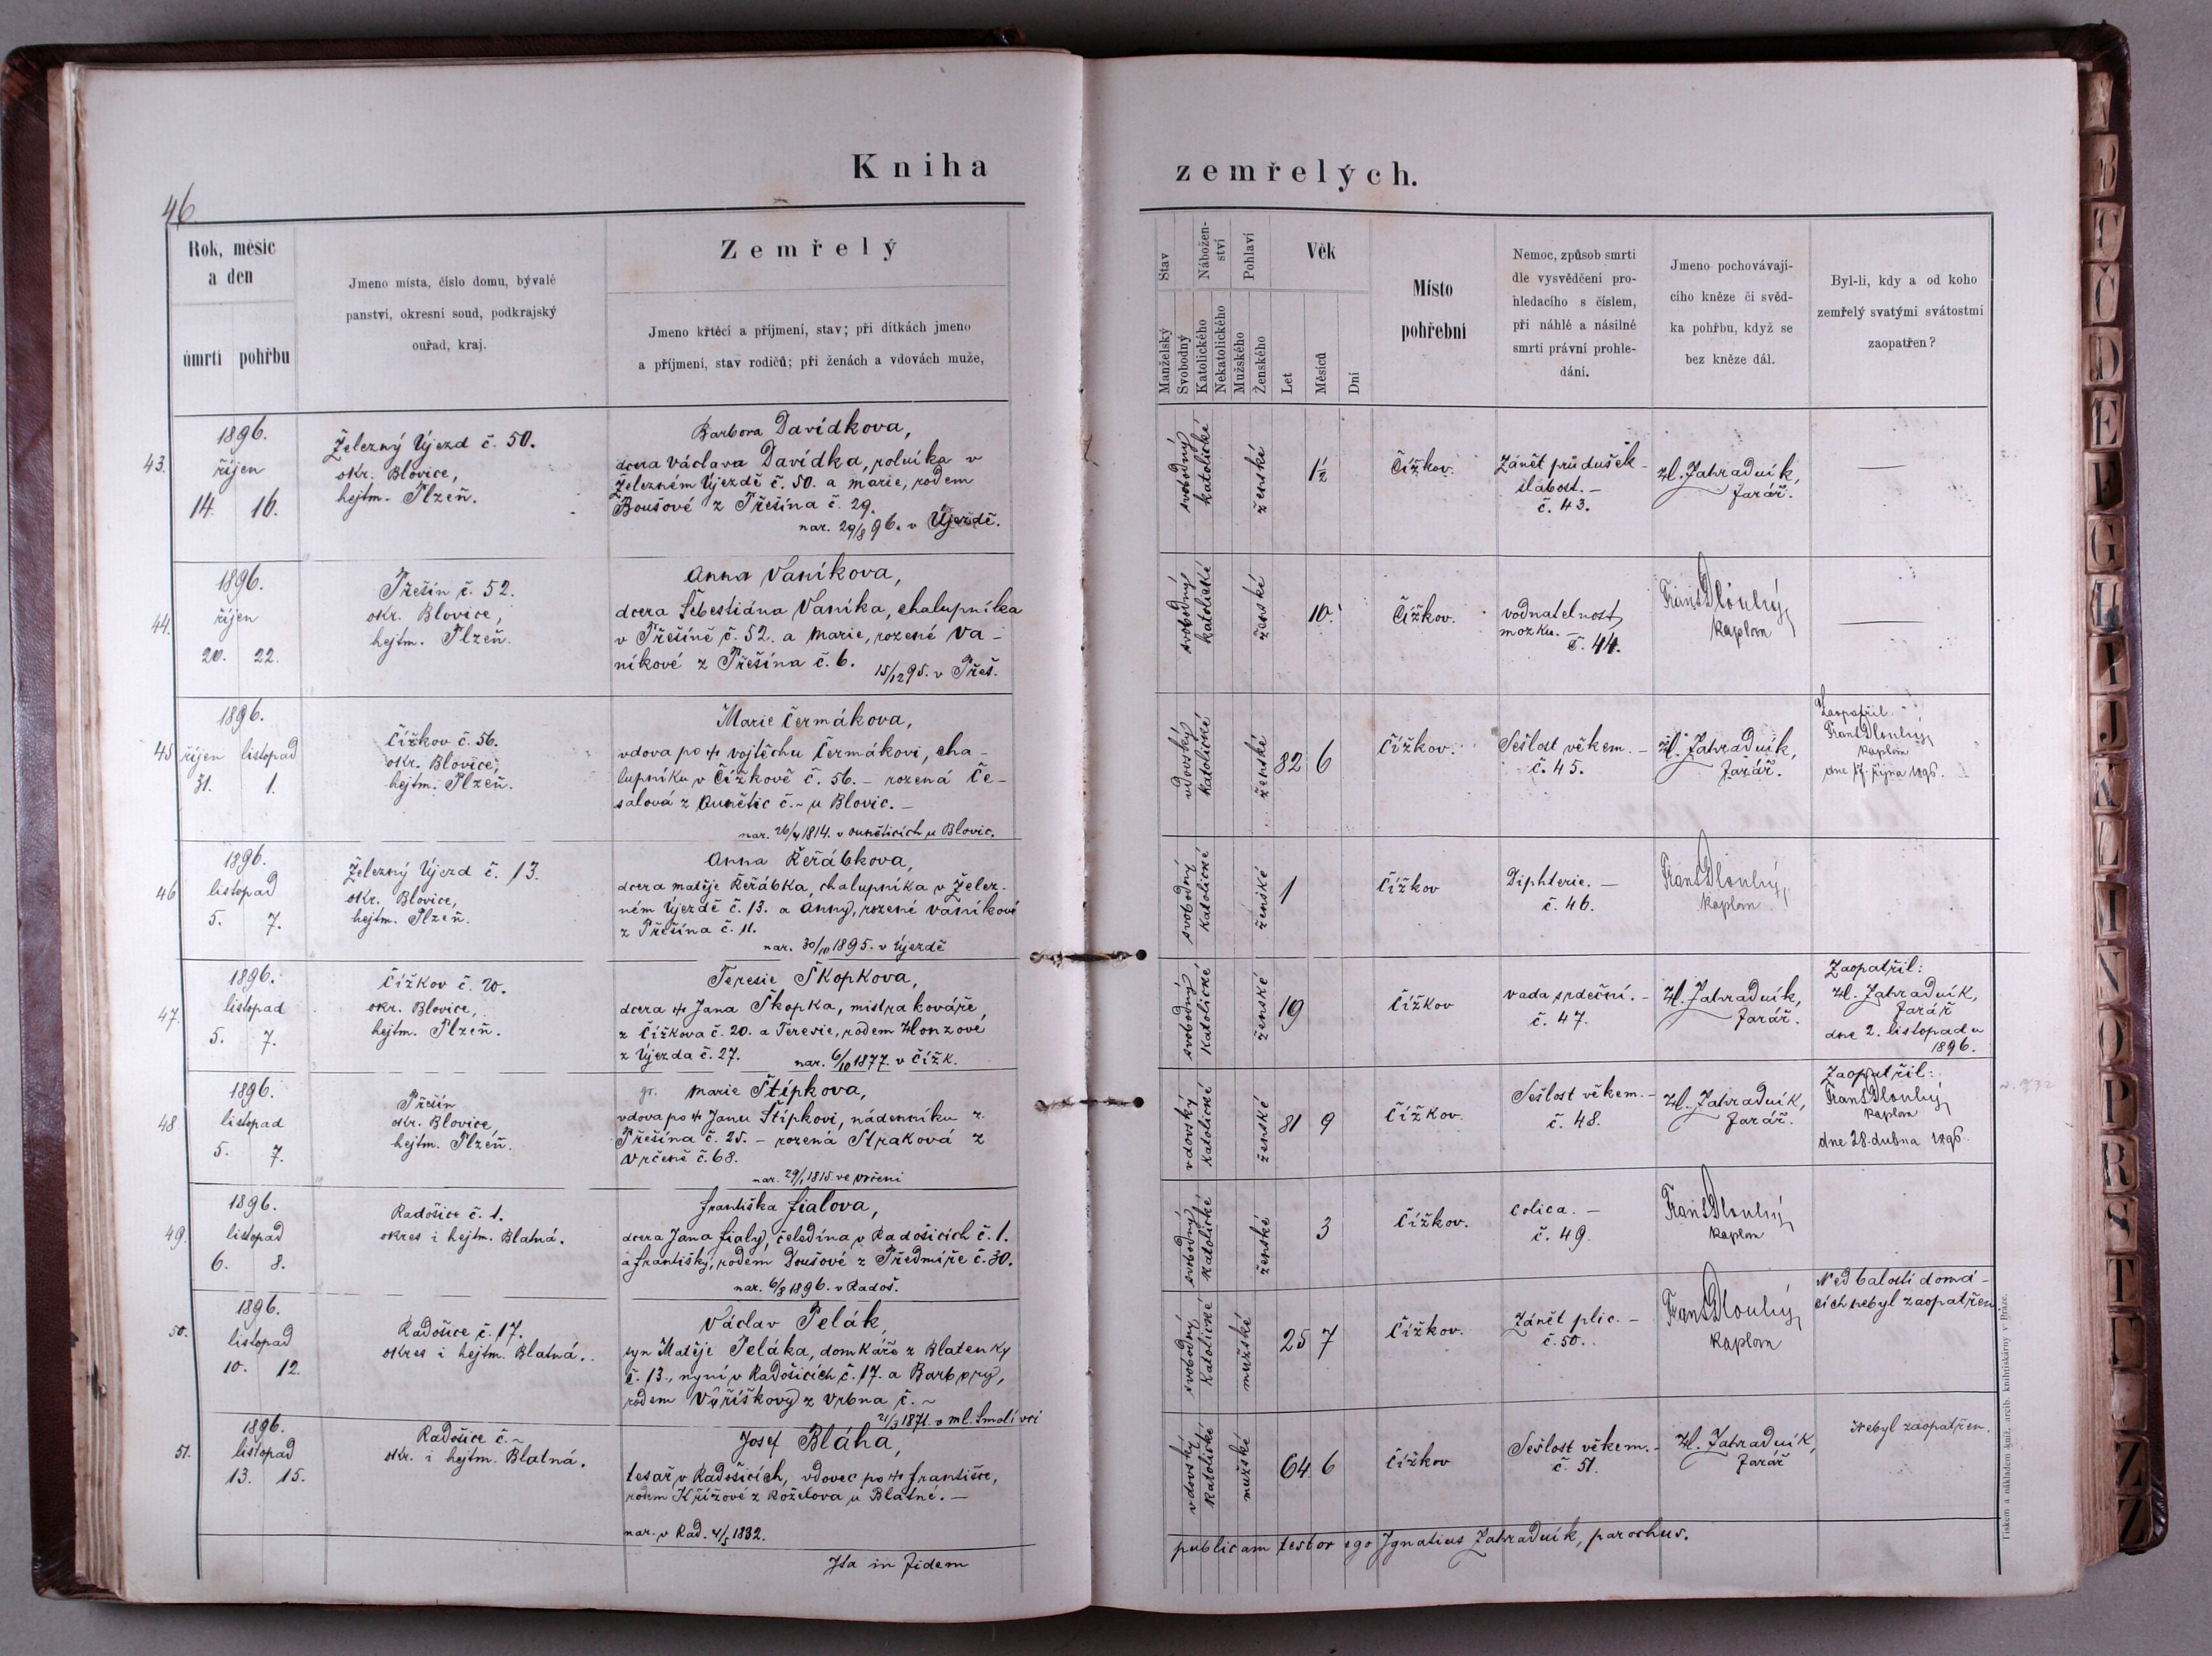 Kniha zemřelých.
46
Rok, měsíc a den
úmrtí pohřbu
Jmeno místa, číslo domu, bývalé
panství, okresní soud, podkrajský
ouřad, kraj.
Zemřelý
Jmeno křtěcí a příjmení, stav; při dítkách jmeno
a příjmení, stav rodičů; při ženách a vdovách muže,
Stav
Manželský
Svobodný
Nábožen-
ství
Katolického
Nekatolického
Pohlaví
Mužského
Ženského
Věk
Let
Měsíců
Dní
Místo
pohřební
Nemoc, způsob smrti
dle vysvědčení pro-
hledacího s číslem,
při náhlé a násilné
smrti právní prohle-
dání.
Jmeno pochovávají-
cího kněze či svěd-
ka pohřbu, když se
bez kněze dál.
Byl-li, kdy a od koho
zemřelý svatými svátostmi
zaopatřen?
43.
1896.
říjen
14. 16.
Železný Újezd č. 50.
okr. Blovice,
hejtm. Plzeň.
Barbora Davídkova,
dcera Václava Davídka, rolníka v
Železném Újezdě č. 50. a Marie, rodem
Boušové z Přešína č. 29.
nar. 29/8 96. v Újezdě.
svobodný
katolické
ženské
1½
Čížkov.
Zánět průdušek -
slabost. -
č. 43.
Hl. Zahradník,
farář.
—
44.
1896.
říjen
20. 22.
Přešín č. 52.
okr. Blovice,
hejtm. Plzeň.
Anna Vaníkova,
dcera Šebestiána Vaníka, chalupníka
v Přešíně č. 52. a Marie, rozené Va-
níkové z Přešína č. 6.
15/12 95. v Přeš.
svobodný
katolické
ženské
10.
Čížkov.
vodnatelnost
mozku.
č. 44.
Frant Dlouhý,
kaplan
—
45
1896.
říjen listopad
31. 1.
Čížkov č. 56.
okr. Blovice,
hejtm. Plzeň.
Marie Čermákova,
vdova po † Vojtěchu Čermákovi, cha-
lupníku v Čížkově č. 56. - rozená Če-
salová z Ounětic č. ~ u Blovic. -
nar. 26/4 1814. v Ouněticích u Blovic.
vdovský
katolické
ženské
82 6
Čížkov.
Sešlost věkem. -
č. 45.
Hl. Zahradník,
farář.
Zaopatřil
Frant Dlouhý,
kaplan
října 1896.
46
1896.
listopad
5. 7.
Železný Újezd č. 13.
okr. Blovice,
hejtm. Plzeň.
Anna Řeřábkova,
dcera Matěje Řeřábka, chalupníka v Želez-
ném Újezdě č. 13. a Anny, rozené Vaníkové
z Přešína č. 11.
nar. 30/10 1895. v Újezdě
svobodný
katolické
ženské
1
Čížkov
Diphterie. -
č. 46.
Frant Dlouhý,
kaplan
47.
1896.
listopad
5. 7.
Čížkov č. 20.
okr. Blovice,
hejtm. Plzeň.
Teresie Škopkova,
dcera † Jana Škopka, mistra kováře,
z Čížkova č. 20. a Teresie, rodem Honzové
z Újezda č. 27.
nar. 6/10 1877. v Čížk.
svobodný
katolické
ženské
19
Čížkov
Vada srdeční. -
č. 47.
Hl. Zahradník,
farář.
Zaopatřil:
Hl. Zahradník,
farář
dne 2. listopadu
1896.
48
1896.
listopad
5. 7.
Přešín
okr. Blovice,
hejtm. Plzeň.
Marie Štípkova,
vdova po † Janu Štípkovi, nádenníku z
Přešína č. 25. - rozená Straková z
Vrčeně č. 68.
nar. 29/1 1815. ve Vrčeni
vdovský
katolické
ženské
81 9
Čížkov.
Sešlost věkem. -
č. 48.
Hl. Zahradník,
farář.
Zaopatřil:
Frant Dlouhý,
kaplan
dne 28. dubna 1896.
49.
1896.
listopad
6. 8.
Radošice č. 1.
okres i hejtm. Blatná.
Františka Fialova,
dcera Jana Fialy, čeledína v Radošicích č. 1.
a Františky, rodem Doušové z Předmíře č. 30.
nar. 6/8 1896. v Radoš.
svobodný
katolické
ženské
3
Čížkov.
Colica. -
č. 49.
Frant Dlouhý,
kaplan
50.
1896.
listopad
10. 12.
Radošice č. 17.
okres i hejtm. Blatná.
Václav Pelák,
syn Matěje Peláka, domkáře z Blatenky
č. 13., nyní v Radošicích č. 17. a Barbory,
rodem Voříškovy z Vrbna č. ~
21/3 1871. v ml. Smolivci
svobodný
katolické
mužské
25 7
Čížkov.
Zánět plic. -
č. 50.
Frant Dlouhý,
kaplan
Nedbalostí domá-
cích nebyl zaopatřen
51.
1896.
listopad
13. 15.
Radošice č. ~
okr. i hejtm. Blatná.
Josef Bláha,
tesař v Radošicích, vdovec po † Františce,
rodem Křížové z Kožlova u Blatné. -
nar. v Rad. 4/5 1832.
vdovský
katolické
mužské
64 6
Čížkov
Sešlost věkem. -
č. 51.
Hl. Zahradník,
farář
Nebyl zaopatřen.
Ita in fidem
publicam testor ego Ignatius Zahradník, parochus.
Tiskem a nákladem kníž. arcib. knihtiskárny v Praze.